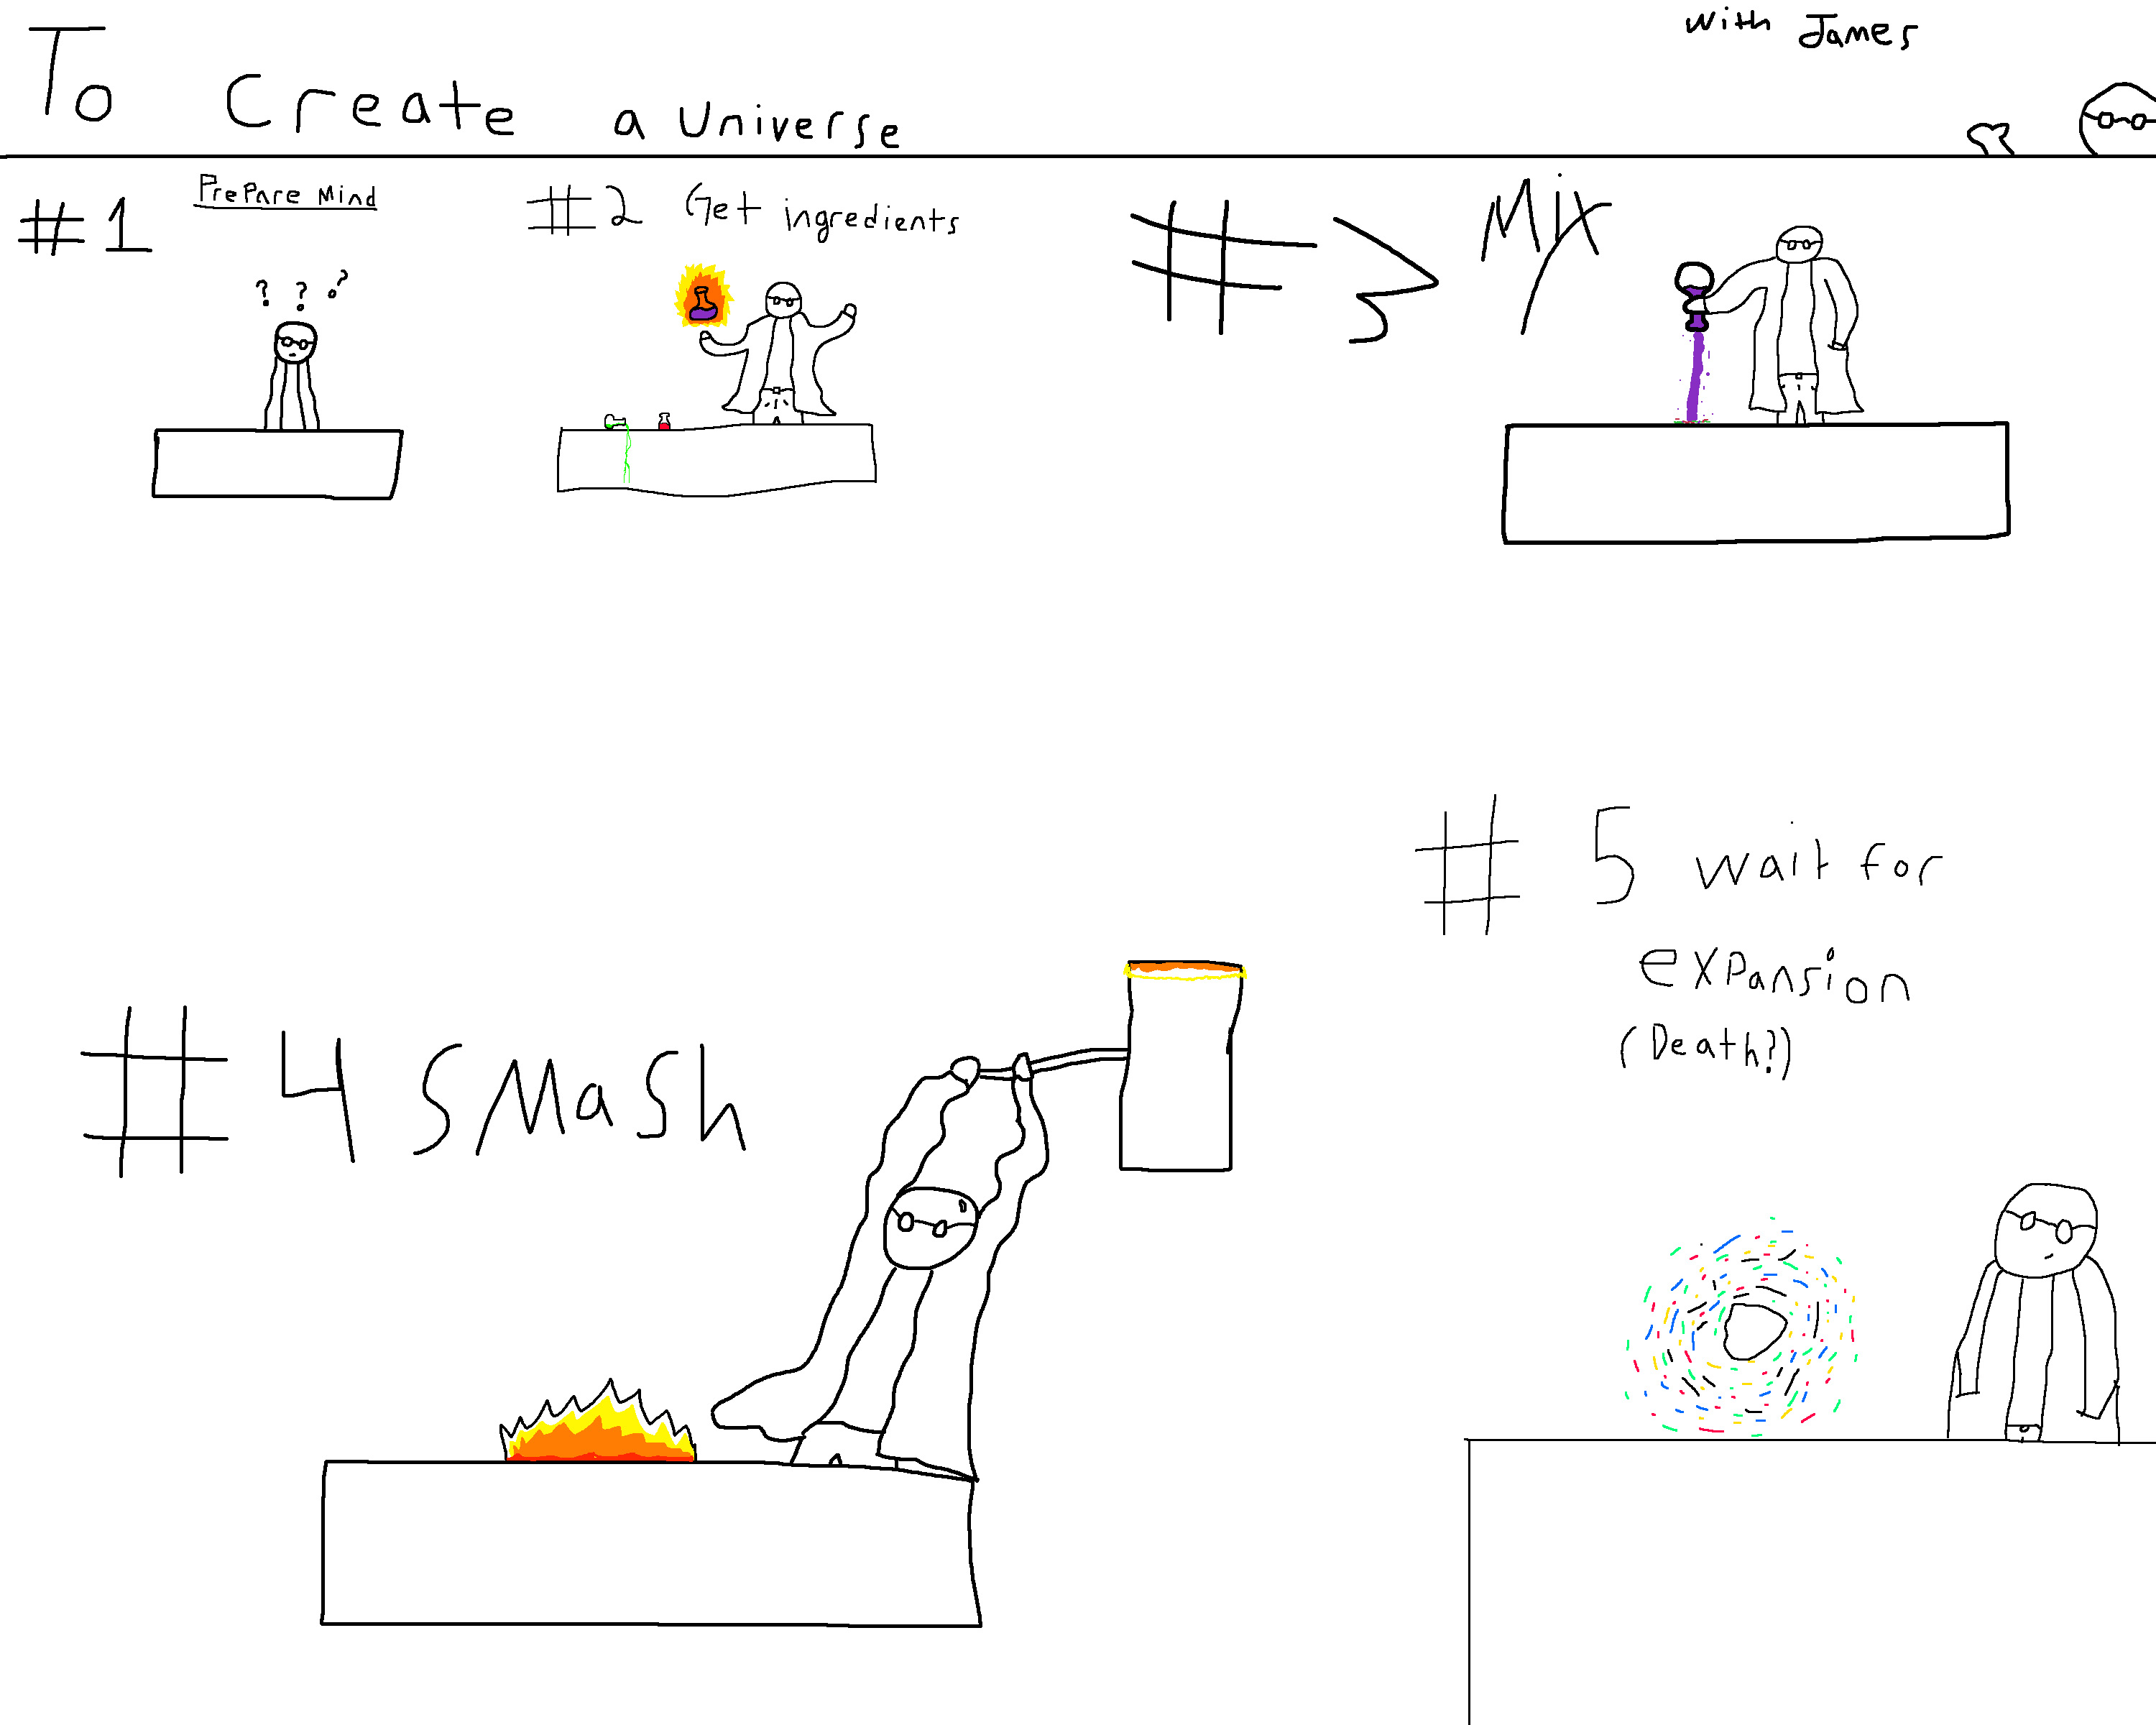 To Create a Universe
with James
#1 Prepare Mind
#2 Get ingredients
#3 Mix
? ? ?
#4 SMash
#5 wait for
expansion
(Death?)